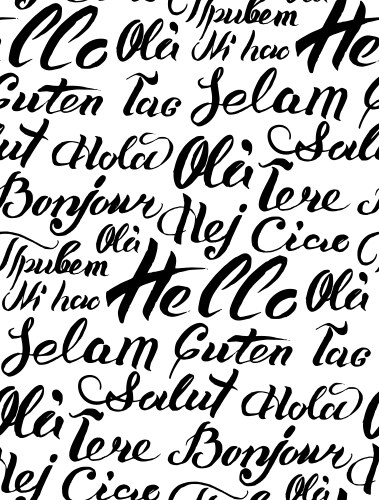 Привет
Hello Olà Ni hao He
Guten Tag Selam G
Salut Hola Olà Salu
Bonjour Hej Tere
Olà Ciao
Привет Hello Olà
Ni hao
Selam Guten Tag
Salut Hola
Olà Tere Bonjour
Hej Ciao Olà